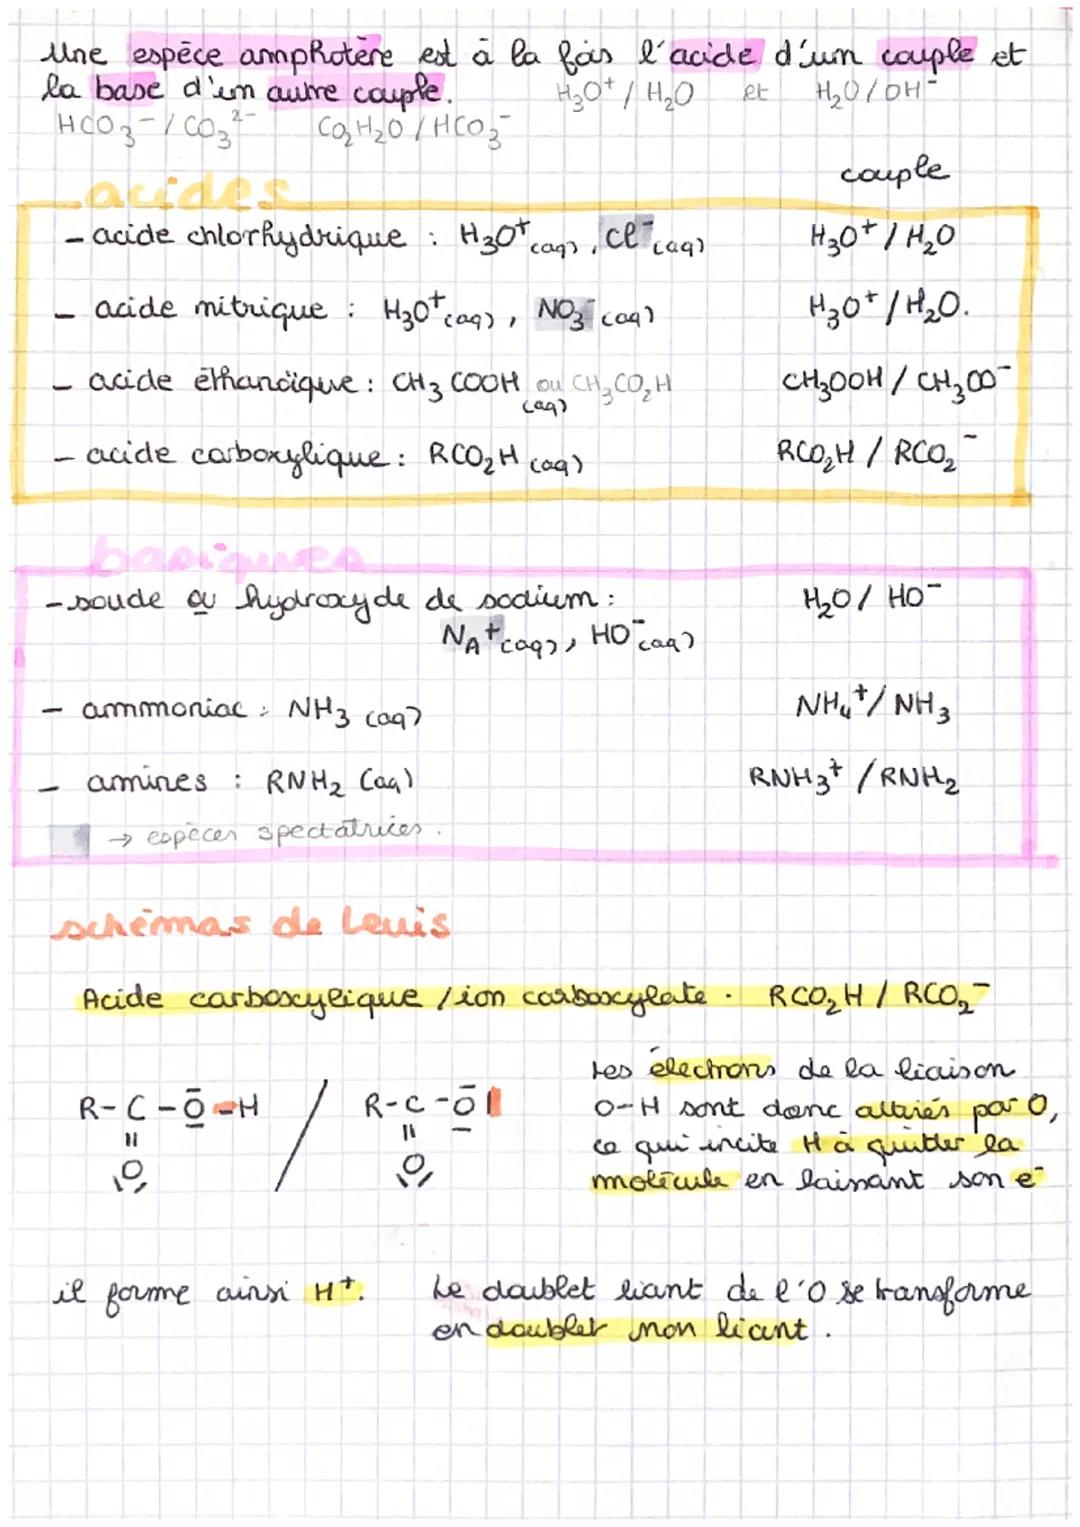 Une espèce amphotère est à la fois l'acide d'un couple et
la base d'un autre couple. H₃O⁺ / H₂O et H₂O / OH⁻
HCO₃⁻ / CO₃²⁻ CO₂H₂O / HCO₃⁻
couple
acides
- acide chlorhydrique : H₃O⁺(aq), Cl⁻(aq) H₃O⁺ / H₂O
- acide nitrique : H₃O⁺(aq), NO₃⁻(aq) H₃O⁺ / H₂O.
- acide éthanoïque : CH₃COOH(aq) ou CH₃CO₂H CH₃OOH / CH₃OO⁻
- acide carboxylique : RCO₂H(aq) RCO₂H / RCO₂⁻
basiques
- soude ou hydroxyde de sodium : H₂O / HO⁻
NA⁺(aq), HO⁻(aq)
- ammoniac : NH₃(aq) NH₄⁺ / NH₃
- amines : RNH₂(aq) RNH₃⁺ / RNH₂
→ espèces spectatrices.
schémas de Lewis
Acide carboxylique / ion carboxylate. RCO₂H / RCO₂⁻
Les électrons de la liaison
R-C-O-H / R-C-O| O-H sont donc attirés par O,
ce qui incite H à quitter la
O O molécule en laissant son e⁻
il forme ainsi H⁺. Le doublet liant de l'O se transforme
en doublet non liant.